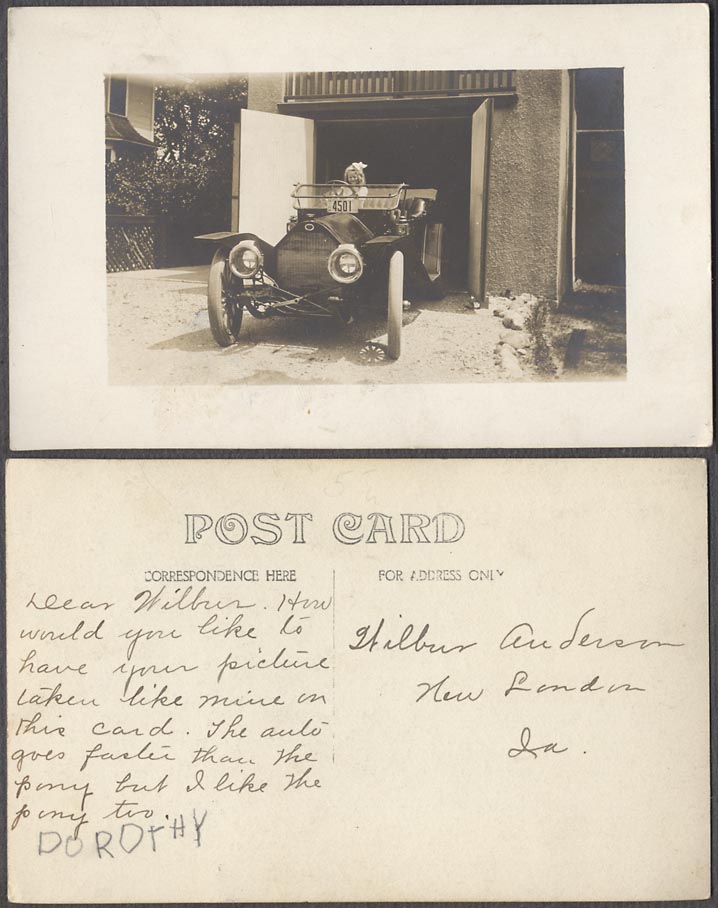 4501
POST CARD
CORRESPONDENCE HERE
FOR ADDRESS ONLY
Dear Wilbur. How
would you like to
have your picture
taken like mine on
this card. The auto
goes faster than the
pony but I like the
pony too.
DOROTHY
Wilbur Anderson
New London
Ia.